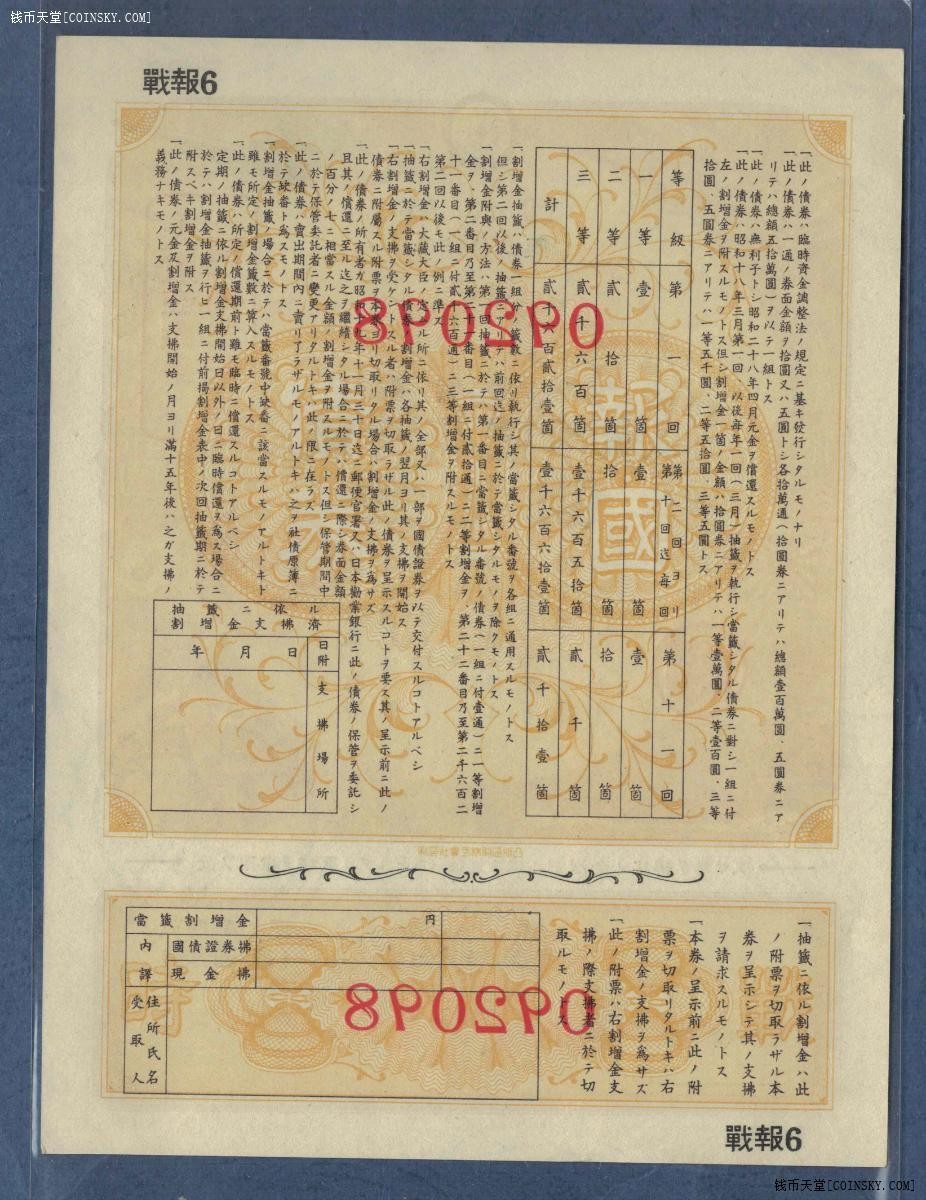 钱币天堂[COINSKY.COM]
戰報6
一此ノ債券ハ臨時資金調整法ノ規定ニ基キ發行シタルモノナリ
一此ノ債券ハ一通ノ券面金額ヲ拾圓又ハ五圓トシ各拾萬通(拾圓券ニアリテハ總額壹百萬圓、五圓券ニア
リテハ總額五拾萬圓)ヲ以テ一組トス
一此ノ債券ハ無利子トシ昭和二十八年四月元金ヲ償還スルモノトス
一此ノ債券ハ昭和十八年三月第一回、以後毎年一回(三月)抽籤ヲ執行シ當籤シタル債券ニ對シ一組ニ付
左ノ割增金ヲ附スルモノトス但シ割增金一箇ノ金額ハ拾圓券ニアリテハ一等壹萬圓、二等壹百圓、三等
拾圓、五圓券ニアリテハ一等五千圓、二等五拾圓、三等五圓トス
等級 第一回 第二回ヨリ第十回迄每回 第十一回
一等 壹箇 壹箇 壹箇
二等 貳拾箇 拾箇 拾箇
三等 貳千六百箇 壹千六百五拾箇 貳千箇
計 貳千六百貳拾壹箇 壹千六百六拾壹箇 貳千拾壹箇
一割增金抽籤ハ債券一組分ノ籤數ニ依リ執行シ其ノ當籤シタル番號ヲ各組ニ通用スルモノトス
但シ第二回以後ノ抽籤ニ於テハ前回迄ノ抽籤ニ於テ當籤シタルモノヲ除クモノトス
一割增金附與ノ方法ハ第一回抽籤ニ於テハ第一番目ニ當籤シタル番號ノ債券(一組ニ付壹通)ニ一等割增
金ヲ、第二番目乃至第二十一番目(一組ニ付貳拾通)ニ二等割增金ヲ、第二十二番目乃至第二千六百二
十一番目(一組ニ付貳千六百通)ニ三等割增金ヲ附スルモノトス
第二回以後モ此ノ例ニ準ズ
一右割增金ハ大藏大臣ノ定ムル所ニ依リ其ノ全部又ハ一部ヲ國債證券ヲ以テ交付スルコトアルベシ
一抽籤ニ於テ當籤シタル債券ノ割增金ハ各抽籤ノ翌月ヨリ其ノ支拂ヲ開始ス
一右割增金ノ支拂ヲ受ケントスル者ハ附票ヲ切取ラザル此ノ債券ヲ呈示スルコトヲ要ス其ノ呈示前ニ此ノ
債券ニ附屬スル附票ヲ本券ヨリ切取リタル場合ハ割增金ノ支拂ヲ爲サズ
一此ノ債券ノ所有者ガ昭和十九年十一月三十日迄ニ郵便官署又ハ日本勸業銀行ニ此ノ債券ノ保管ヲ委託シ
且其ノ償還ニ至ル迄之ヲ繼續シタル場合ニ於テハ償還ニ際シ券面金額
ノ百分ノ七ニ相當スル金額ノ割增金ヲ附スルモノトス但シ保管期間中
ニ於テ保管委託者ニ變更アリタルトキハ此ノ限ニ在ラズ
一此ノ債券ハ賣出期間內ニ賣リ了ラザルモノアルトキハ之ヲ社債原簿ニ
於テ缺番ト爲スモノトス
一割增金抽籤ノ場合ニ於テハ當籤番號中缺番ニ該當スルモノアルトキト
雖モ所定ノ割增金籤數ニ算入スルモノトス
一此ノ債券ハ所定ノ償還期前ト雖モ臨時ニ償還スルコトアルベシ
定期ノ抽籤ニ依ル割增金支拂開始日以外ノ日ニ臨時償還ヲ爲ス場合ニ
於テハ割增金抽籤ヲ行ヒ一組ニ付前揭割增金表中ノ次回抽籤期ニ於テ
附スベキ割增金ヲ附ス
一此ノ債券ノ元金及割增金ハ支拂開始ノ月ヨリ滿十五年後ハ之ガ支拂ノ
義務ナキモノトス
092098
報國
抽籤ニ依ル
割增金支拂濟
年月日
日附
支拂場所
一抽籤ニ依ル割增金ハ此
ノ附票ヲ切取ラザル本
券ヲ呈示シテ其ノ支拂
ヲ請求スルモノトス
一本券ノ呈示前ニ此ノ附
票ヲ切取リタルトキハ右
割增金ノ支拂ヲ爲サズ
一此ノ附票ハ右割增金支
拂ノ際支拂者ニ於テ切
取ルモノトス
當籤割增金 円
內譯 國債證券拂
現金拂
受取人 住所氏名
092098
戰報6
钱币天堂[COINSKY.COM]